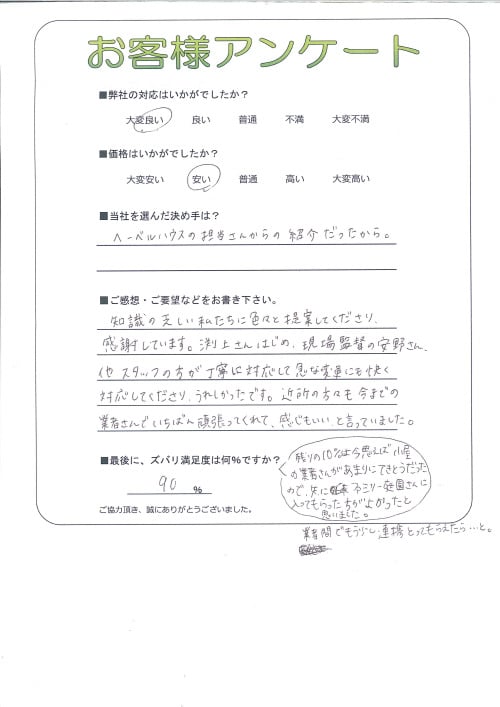 お客様アンケート
■弊社の対応はいかがでしたか?
大変良い 良い 普通 不満 大変不満
■価格はいかがでしたか?
大変安い 安い 普通 高い 大変高い
■当社を選んだ決め手は?
ヘーベルハウスの担当さんからの紹介だったから。
■ご感想・ご要望などをお書き下さい。
知識の乏しい私たちに色々と提案してくださり、
感謝しています。渕上さんはじめ、現場監督の安野さん、
他スタッフの方が丁寧に対応して急な変更にも快く
対応してくださり、うれしかったです。近所の方々も今までの
業者さんでいちばん頑張ってくれて、感じもいいと言っていました。
■最後に、ズバリ満足度は何%ですか?
90 %
ご協力頂き、誠にありがとうございました。
残りの10%は今思えば小屋
の業者さんがあまりにてきとうだった
ので、先に ファミリー庭園さんに
入ってもらった方がよかったと
思いました。
業者間でもう少し連携とってもらえたら…と。